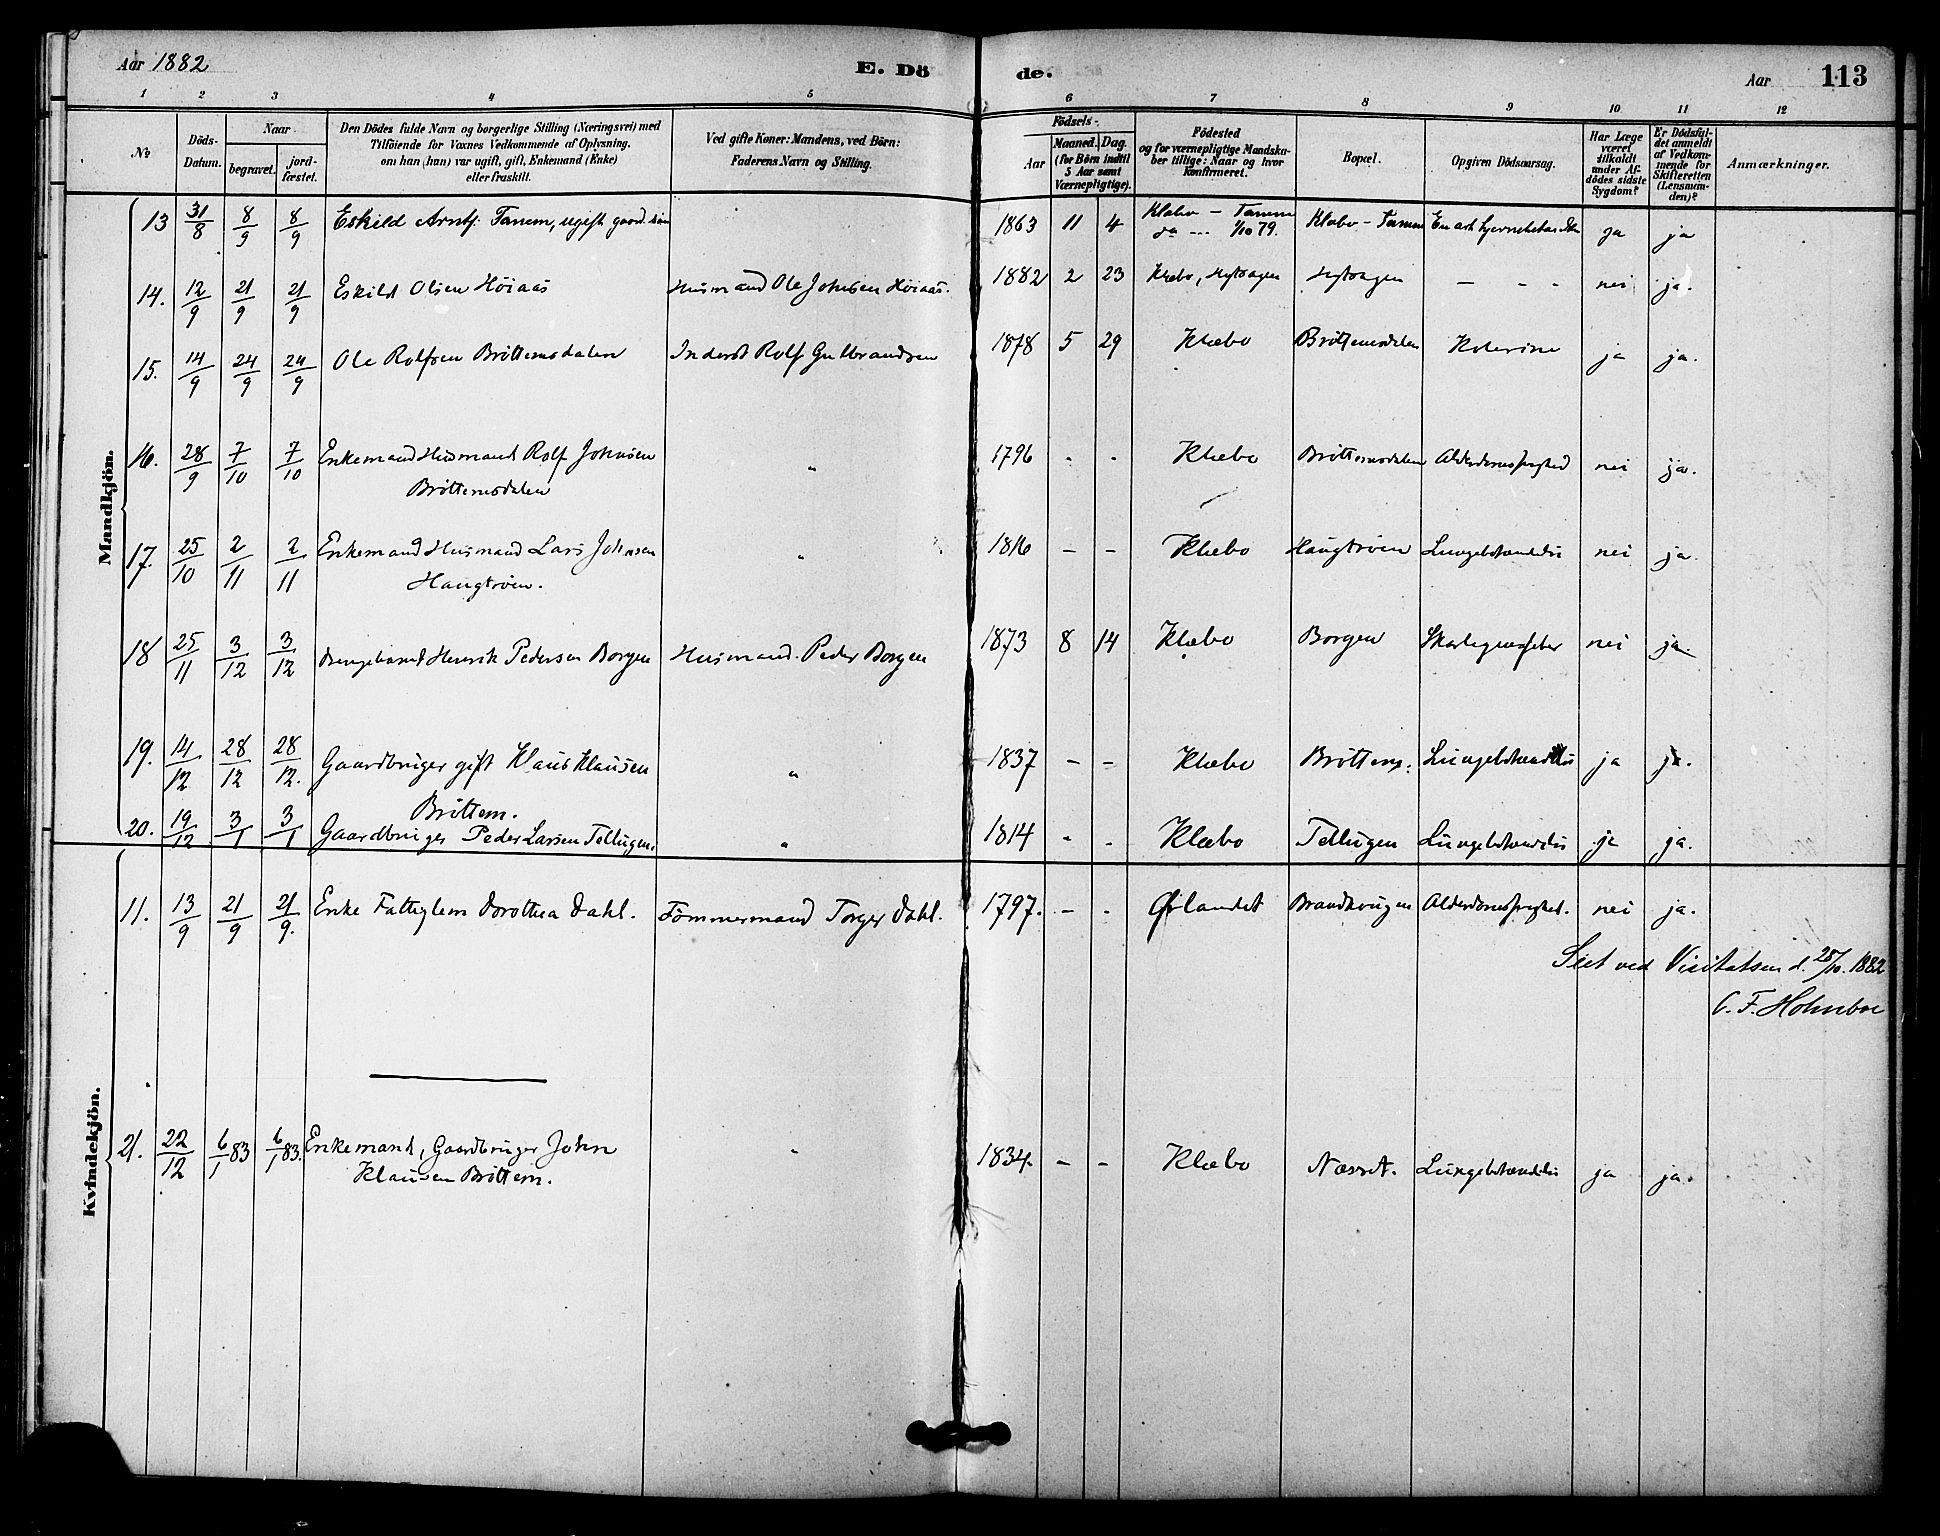 Aar 1882
E. Dö de.
Aar 113
1 2 3 4 5 6 7 8 9 10 11 12
No
Döds-Datum.
Naar
begravet.
jordfæstet.
Den Dödes fulde Navn og borgerlige Stilling (Næringsvei) med
Tilföiende for Voxnes Vedkommende af Oplysning,
om han (hun) var ugift, gift, Enkemand (Enke)
eller fraskilt.
Ved gifte Koner: Mandens, ved Börn:
Faderens Navn og Stilling.
Födsels-
Aar
Maaned. Dag.
(for Börn indtil
5 Aar samt
Værnepligtige).
Födested
og for værnepligtige Mandska-
ber tillige: Naar og hvor
konfirmeret.
Bopæl.
Opgiven Dödsaarsag.
Har Læge
været
tilkaldt
under Af-
dödes sidste
Sygdom?
Er Dödsfal-
det anmeldt
af Vedkom-
mende for
Skifteretten
(Lensman-
den)?
Anmærkninger.
Mandkjön.
13 31/8 8/9 8/9 Eskild Arntf. Tanem, ugift 1863 11 4 Klæbo - Tanem Klæbo - Tanem En art ja ja
do --- 1/10 79.
14. 12/9 21/9 21/9 Eskild Olsen Höiaas Husmand Ole Johnsen Höiaas. 1882 2 23 Klæbo, - - - nei ja.
15. 14/9 24/9 24/9 Ole Rolfsen Bröttemsdalen Inderst Rolf Gulbrandsen 1878 5 29 Klæbo Bröttemsdalen Kolerine ja ja.
16. 28/9 7/10 7/10 Enkemand Husmand Rolf Johnsen " 1796 - - Klæbo Bröttemsdalen Alderdomssvaghed nei ja.
Bröttemsdalen
17. 25/10 2/11 2/11 Enkemand Husmand Lars Johnsen " 1816 - - Klæbo Haugtröen Lungebetændelse nei ja.
Haugtröen.
18 25/11 3/12 3/12 Drengebarnet Henrik Pedersen Borgen Husmand Peder Borgen 1873 8 14 Klæbo Borgen Skarlagensfeber nei ja.
19. 14/12 28/12 28/12. Gaardbruger gift Klaus Klausen " 1837 - - Klæbo Bröttem. Lungebetændelse ja ja.
Bröttem.
20. 19/12 3/1 3/1 Gaardbruger Peder Larsen Tellugen. " 1814 - - Klæbo Tellugen Lungebetændelse ja ja.
Kvindekjön.
11. 13/9 21/9 21/9. Enke Fattiglem Dorothea Dahl. Tömmermand Torger Dahl. 1797. - - Örlandet Alderdomssvaghed. nei ja.
Seet ved Visitatsen d. 25/10. 1882
C. F. Holmboe
21. 22/12 6/1 83 6/1 83. Enkemand, Gaardbruger John " 1834. - - Klæbo Næsset. Lungebetændelse ja ja.
Klausen Bröttem.